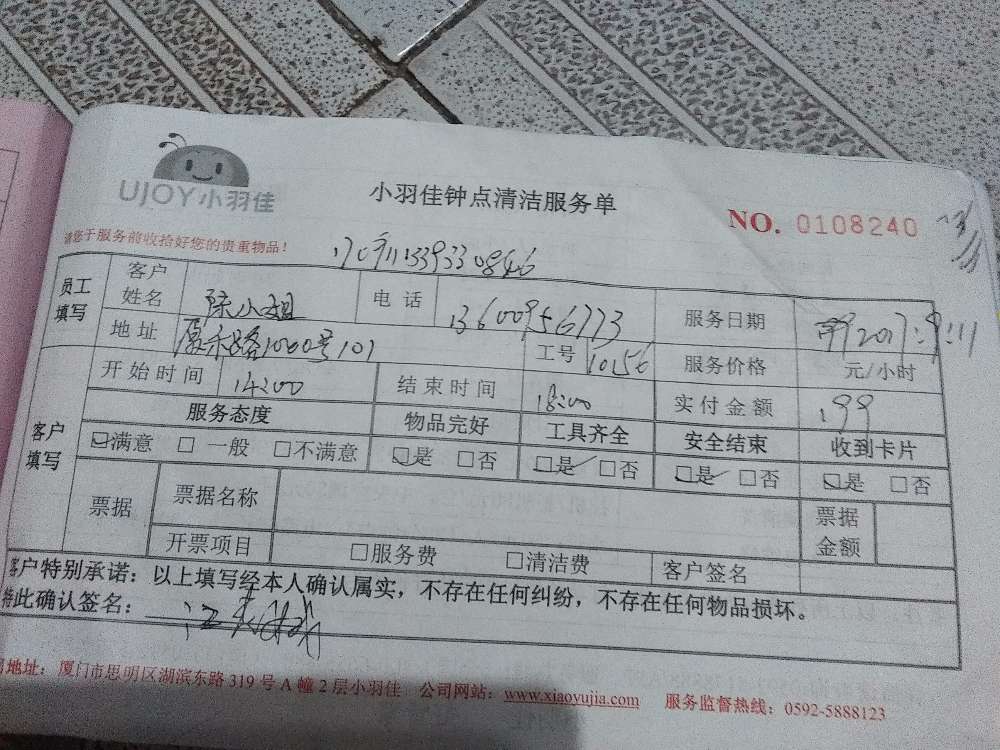 UJOY小羽佳
小羽佳钟点清洁服务单
NO. 0108240
请您于服务前收拾好您的贵重物品！
13393330846
员工填写 客户姓名 陈小姐 电话 13600956773 服务日期 2017.9.11
地址 1000号101 工号 10156 服务价格 元/小时
开始时间 14:00 结束时间 18:00 实付金额 199
客户填写 服务态度 物品完好 工具齐全 安全结束 收到卡片
☑满意 □一般 □不满意 ☑是 □否 ☑是 □否 ☑是 □否 ☑是 □否
票据 票据名称 票据金额
开票项目 □服务费 □清洁费 客户签名
客户特别承诺：以上填写经本人确认属实，不存在任何纠纷，不存在任何物品损坏。
特此确认签名：
司地址：厦门市思明区湖滨东路319号A幢2层小羽佳 公司网站：www.xiaoyujia.com 服务监督热线：0592-5888123